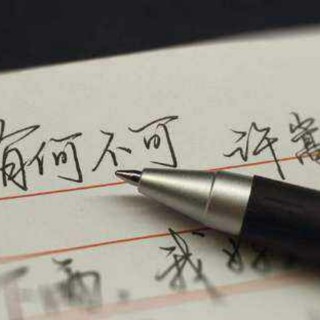 有何不可 许嵩
雨,我